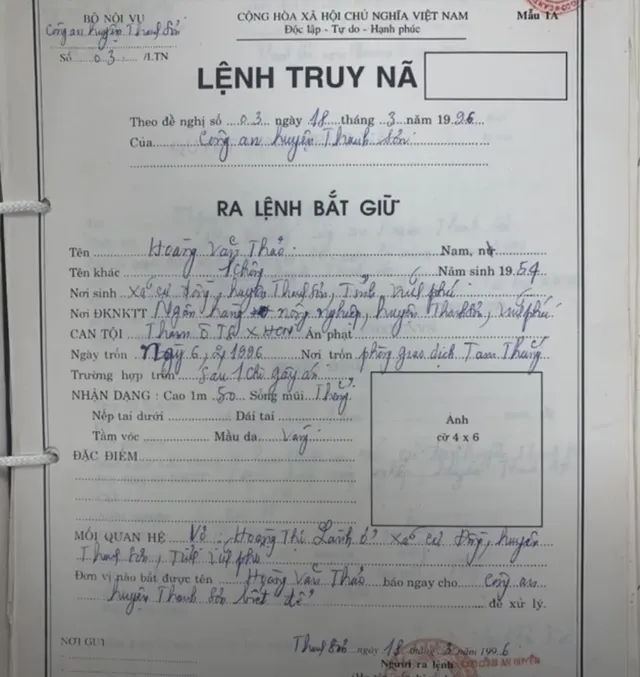 BỘ NỘI VỤ
Công an huyện Thanh Sơn
Số 03 /LTN
CỘNG HÒA XÃ HỘI CHỦ NGHĨA VIỆT NAM
Độc lập - Tự do - Hạnh phúc
Mẫu 1A
LỆNH TRUY NÃ
Theo đề nghị số 03 ngày 18 tháng 3 năm 1996
Của Công an huyện Thanh Sơn
RA LỆNH BẮT GIỮ
Tên Hoàng Văn Thảo Nam, nữ
Tên khác Năm sinh 1954
Nơi sinh Xã cự đồng, huyện Thanh Sơn, Tỉnh Vĩnh phú
Nơi ĐKNKTT Ngân hàng nông nghiệp, huyện Thanh Sơn, Vĩnh phú
CAN TỘI Tham Ô TS XHCN Án phạt
Ngày trốn Ngày 6 1996 Nơi trốn phòng giao dịch Tam Thắng
Trường hợp trốn Sau khi gây án
NHẬN DẠNG : Cao 1m 50 Sống mũi Thẳng
Nếp tai dưới Dái tai
Tầm vóc Mầu da Vàng
ĐẶC ĐIỂM
Ảnh
cờ 4 x 6
MỐI QUAN HỆ Vợ Hoàng Thị Lành ở xã cự Đồng, huyện
Thanh Sơn, Tỉnh Vĩnh phú
Đơn vị nào bắt được tên Hoàng Văn Thảo báo ngay cho Công an
huyện Thanh Sơn biết để để xử lý.
NƠI GỬI
Thanh Sơn ngày 18 tháng 3 năm 1996
Người ra lệnh
CÔNG AN HUYỆN